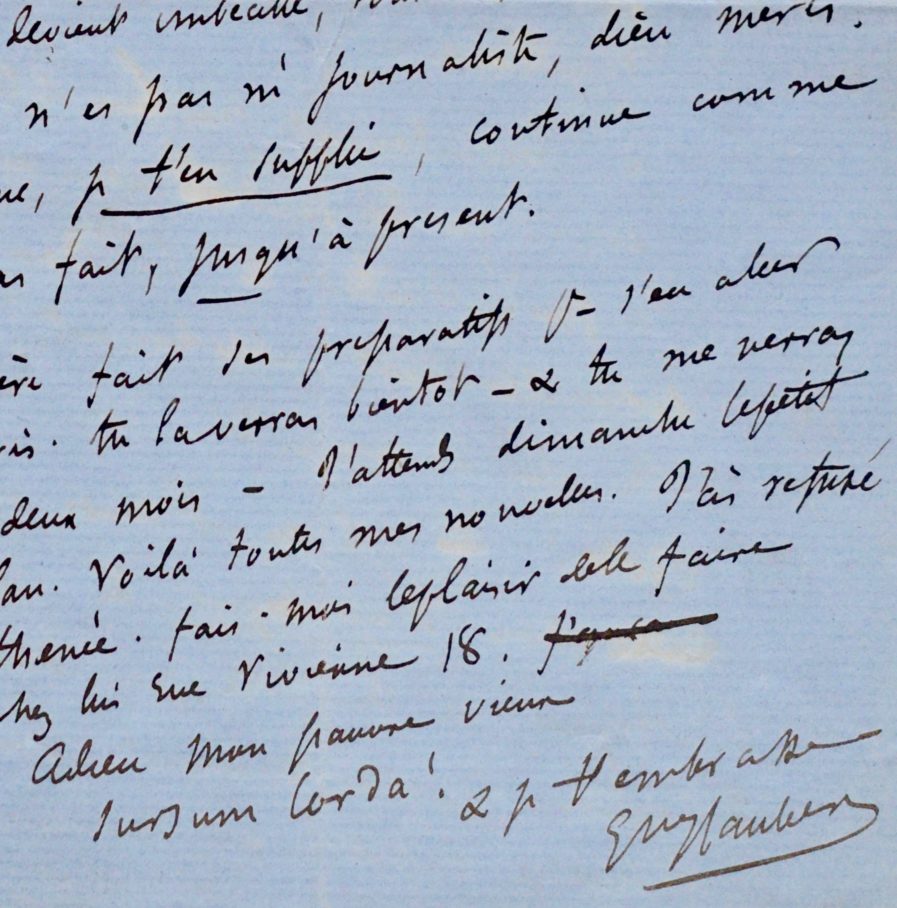 devient imbecille,
n'es pas né journaliste, dieu merci.
ue, je t'en supplie, continue comme
as fait, jusqu'à présent.
ère fait ses préparatifs pr s'en aller
ris. tu la verras bientot - & tu me verras
deux mois - J'attends dimanche le petit
lau. Voilà toutes mes nouvelles. J'ai refusé
thenée. fais-moi le plaisir de le faire
chez lui rue Vivienne 18.
Adieu mon pauvre vieux
sursum corda! & je t'embrasse
Gve Flaubert